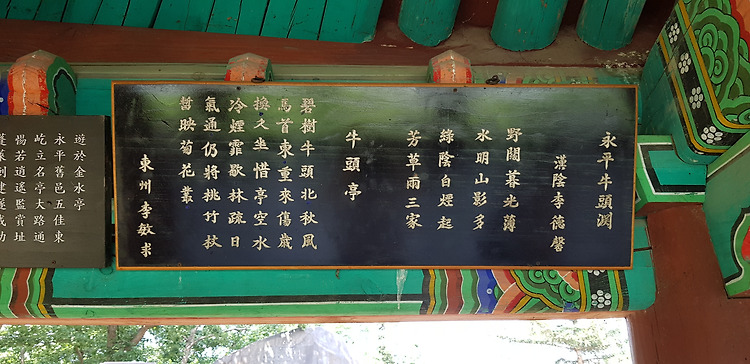 永平牛頭淵
漢陰李德馨
野闊暮光薄
水明山影多
綠陰白煙起
芳草雨三家
牛頭亭
碧樹牛頭北秋風
馬首東重來傷歲
換久坐惜亭空水
冷煙霏歇林疏日
氣通仍將桃竹杖
暫映菊花叢
東州李敏求
遊於金水亭
永平舊邑五佳東
屹立名亭大路通
惕若逍遙監賞址
蓬萊創建遂成功